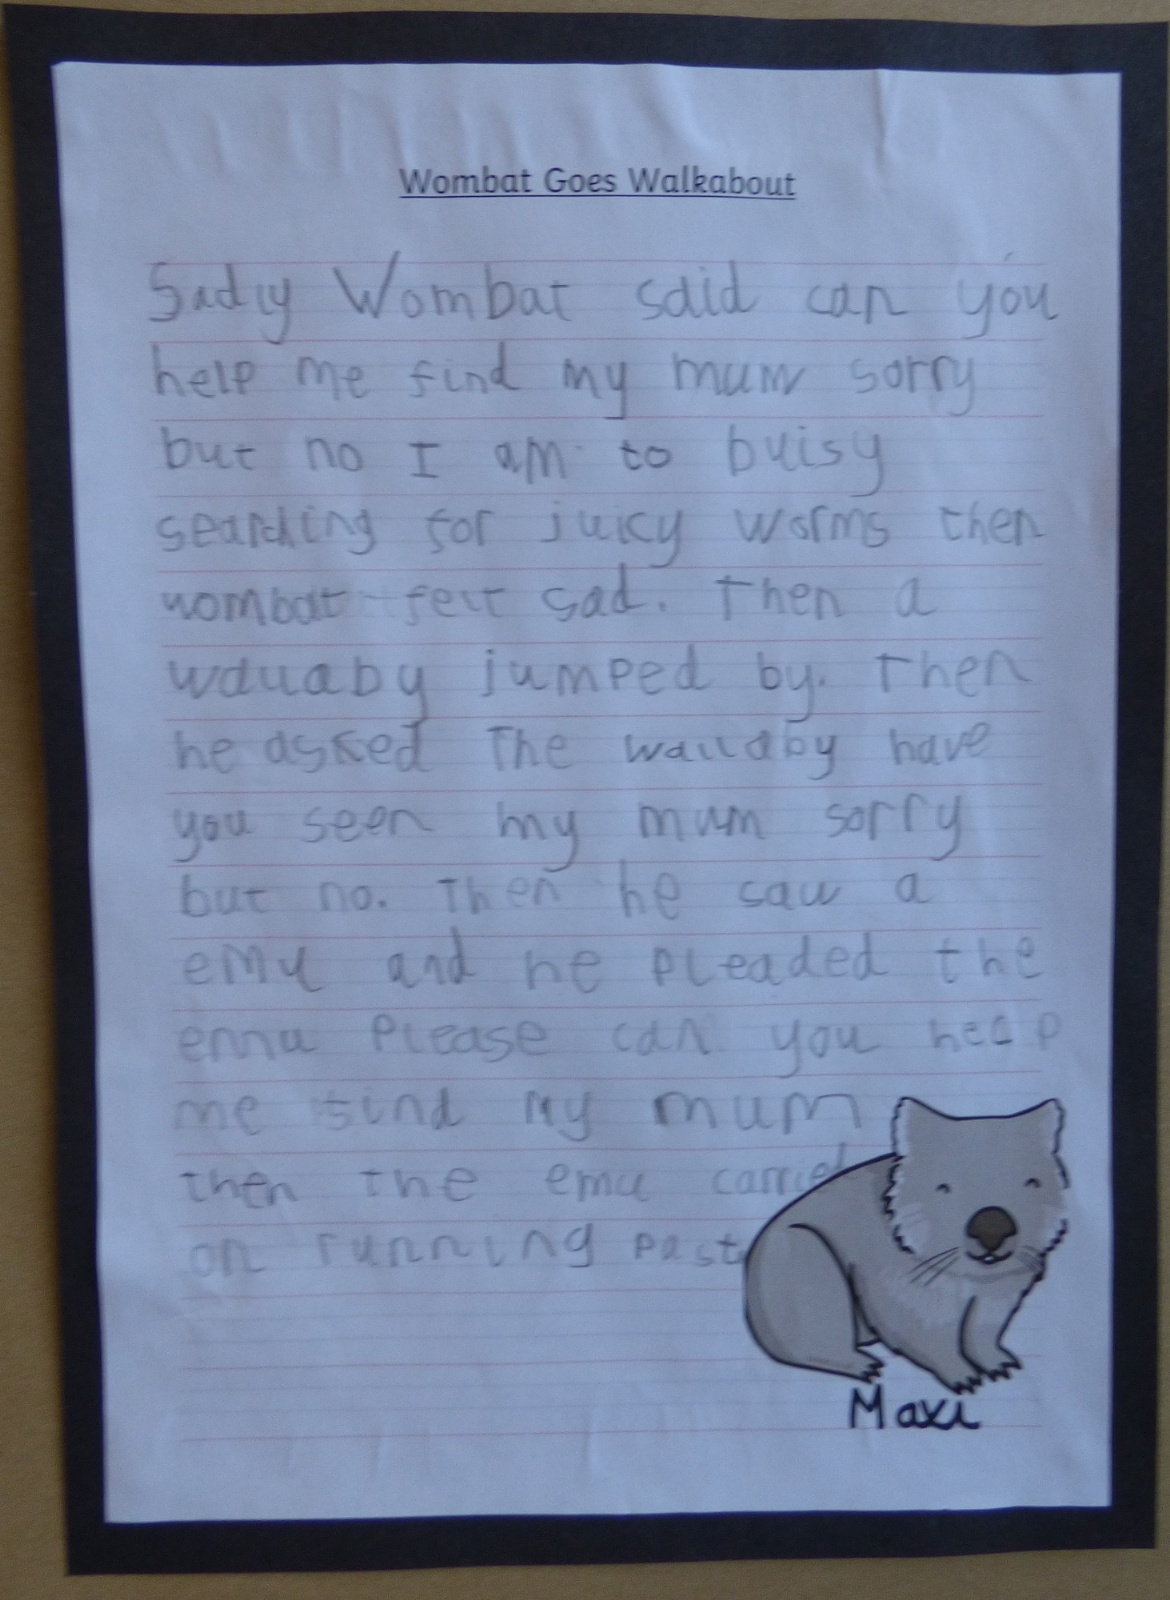 Wombat Goes Walkabout
Sadly Wombat said can you
help me find my mum sorry
but no I am to buisy
searching for juicy worms then
wombat felt sad. Then a
wallaby jumped by. Then
he asked The wallaby have
you seen my mum sorry
but no. Then he saw a
emu and he pleaded the
emu Please can you help
me find my mum
then the emu carried
on running past
Maxi